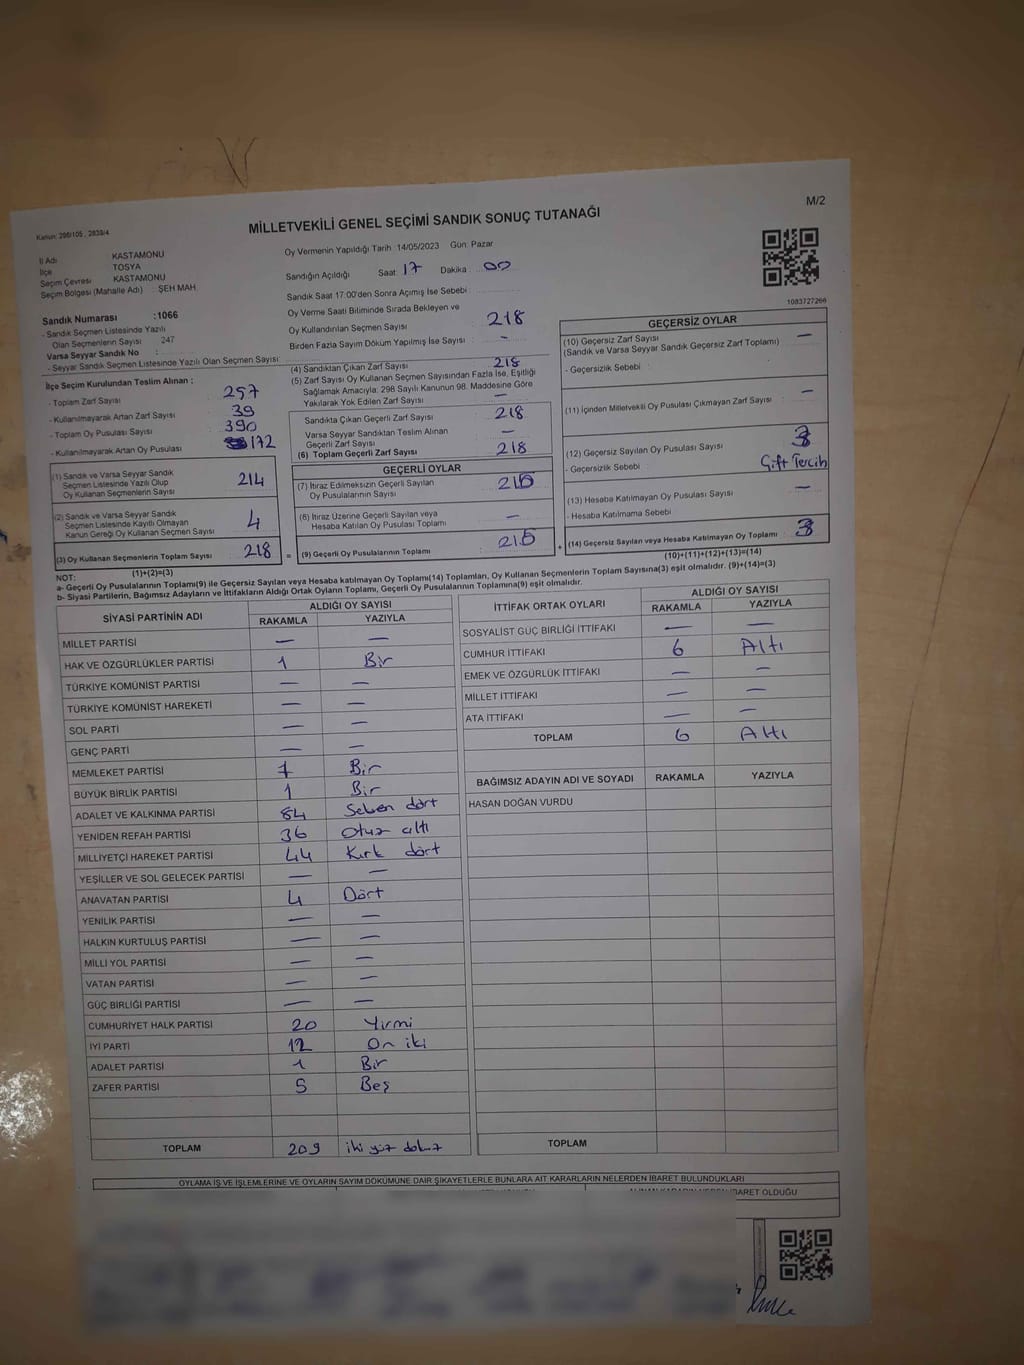 M/2
Kanun: 298/105, 2839/4
MİLLETVEKİLİ GENEL SEÇİMİ SANDIK SONUÇ TUTANAĞI
İl Adı KASTAMONU
İlçe TOSYA
Seçim Çevresi KASTAMONU
Seçim Bölgesi (Mahalle Adı) : ŞEH MAH
Sandık Numarası :1066
- Sandık Seçmen Listesinde Yazılı
Olan Seçmenlerin Sayısı 247
Varsa Seyyar Sandık No :
- Seyyar Sandık Seçmen Listesinde Yazılı Olan Seçmen Sayısı:
Oy Vermenin Yapıldığı Tarih 14/05/2023 Gün: Pazar
Sandığın Açıldığı Saat 17 Dakika : 00
Sandık Saat 17:00'den Sonra Açımış İse Sebebi :
Oy Verme Saati Bitiminde Sırada Bekleyen ve
Oy Kullandırılan Seçmen Sayısı 218
Birden Fazla Sayım Döküm Yapılmış İse Sayısı : -
1083727266
İlçe Seçim Kurulundan Teslim Alınan :
- Toplam Zarf Sayısı 257
- Kullanılmayarak Artan Zarf Sayısı 39
- Toplam Oy Pusulası Sayısı 390
- Kullanılmayarak Artan Oy Pusulası 172
(1) Sandık ve Varsa Seyyar Sandık
Seçmen Listesinde Yazılı Olup
Oy Kullanan Seçmenlerin Sayısı 214
(2) Sandık ve Varsa Seyyar Sandık
Seçmen Listesinde Kayıtlı Olmayan
Kanun Gereği Oy Kullanan Seçmen Sayısı 4
(3) Oy Kullanan Seçmenlerin Toplam Sayısı 218
(1)+(2)=(3)
(4) Sandıktan Çıkan Zarf Sayısı 218
(5) Zarf Sayısı Oy Kullanan Seçmen Sayısından Fazla İse, Eşitliği
Sağlamak Amacıyla: 298 Sayılı Kanunun 98. Maddesine Göre
Yakılarak Yok Edilen Zarf Sayısı —
Sandıkta Çıkan Geçerli Zarf Sayısı 218
Varsa Seyyar Sandıktan Teslim Alınan
Geçerli Zarf Sayısı —
(6) Toplam Geçerli Zarf Sayısı 218
GEÇERLİ OYLAR
(7) İtiraz Edilmeksizin Geçerli Sayılan
Oy Pusulalarının Sayısı 215
(8) İtiraz Üzerine Geçerli Sayılan veya
Hesaba Katılan Oy Pusulası Toplamı —
= (9) Geçerli Oy Pusulalarının Toplamı 215
GEÇERSİZ OYLAR
(10) Geçersiz Zarf Sayısı —
(Sandık ve Varsa Seyyar Sandık Geçersiz Zarf Toplamı)
- Geçersizlik Sebebi :
(11) İçinden Milletvekili Oy Pusulası Çıkmayan Zarf Sayısı —
(12) Geçersiz Sayılan Oy Pusulası Sayısı 3
- Geçersizlik Sebebi Çift Tercih
(13) Hesaba Katılmayan Oy Pusulası Sayısı —
- Hesaba Katılmama Sebebi
+ (14) Geçersiz Sayılan veya Hesaba Katılmayan Oy Toplamı 3
(10)+(11)+(12)+(13)=(14)
NOT:
a- Geçerli Oy Pusulalarının Toplamı(9) ile Geçersiz Sayılan veya Hesaba katılmayan Oy Toplamı(14) Toplamları, Oy Kullanan Seçmenlerin Toplam Sayısına(3) eşit olmalıdır. (9)+(14)=(3)
b- Siyasi Partilerin, Bağımsız Adayların ve İttifakların Aldığı Ortak Oyların Toplamı, Geçerli Oy Pusulalarının Toplamına(9) eşit olmalıdır.
SİYASİ PARTİNİN ADI ALDIĞI OY SAYISI
RAKAMLA YAZIYLA
MİLLET PARTİSİ — —
HAK VE ÖZGÜRLÜKLER PARTİSİ 1 Bir
TÜRKİYE KOMÜNİST PARTİSİ — —
TÜRKİYE KOMÜNİST HAREKETİ — —
SOL PARTİ — —
GENÇ PARTİ — —
MEMLEKET PARTİSİ 1 Bir
BÜYÜK BİRLİK PARTİSİ 1 Bir
ADALET VE KALKINMA PARTİSİ 84 Seksen dört
YENİDEN REFAH PARTİSİ 36 Otuz altı
MİLLİYETÇİ HAREKET PARTİSİ 44 Kırk dört
YEŞİLLER VE SOL GELECEK PARTİSİ — —
ANAVATAN PARTİSİ 4 Dört
YENİLİK PARTİSİ — —
HALKIN KURTULUŞ PARTİSİ — —
MİLLİ YOL PARTİSİ — —
VATAN PARTİSİ — —
GÜÇ BİRLİĞİ PARTİSİ — —
CUMHURİYET HALK PARTİSİ 20 Yirmi
İYİ PARTİ 12 On iki
ADALET PARTİSİ 1 Bir
ZAFER PARTİSİ 5 Beş
TOPLAM 209 iki yüz dokuz
İTTİFAK ORTAK OYLARI ALDIĞI OY SAYISI
RAKAMLA YAZIYLA
SOSYALİST GÜÇ BİRLİĞİ İTTİFAKI — —
CUMHUR İTTİFAKI 6 Altı
EMEK VE ÖZGÜRLÜK İTTİFAKI — —
MİLLET İTTİFAKI — —
ATA İTTİFAKI — —
TOPLAM 6 Altı
BAĞIMSIZ ADAYIN ADI VE SOYADI RAKAMLA YAZIYLA
HASAN DOĞAN VURDU
TOPLAM
OYLAMA İŞ VE İŞLEMLERİNE VE OYLARIN SAYIM DÖKÜMÜNE DAİR ŞİKAYETLERLE BUNLARA AİT KARARLARIN NELERDEN İBARET BULUNDUKLARI
İBARET OLDUĞU